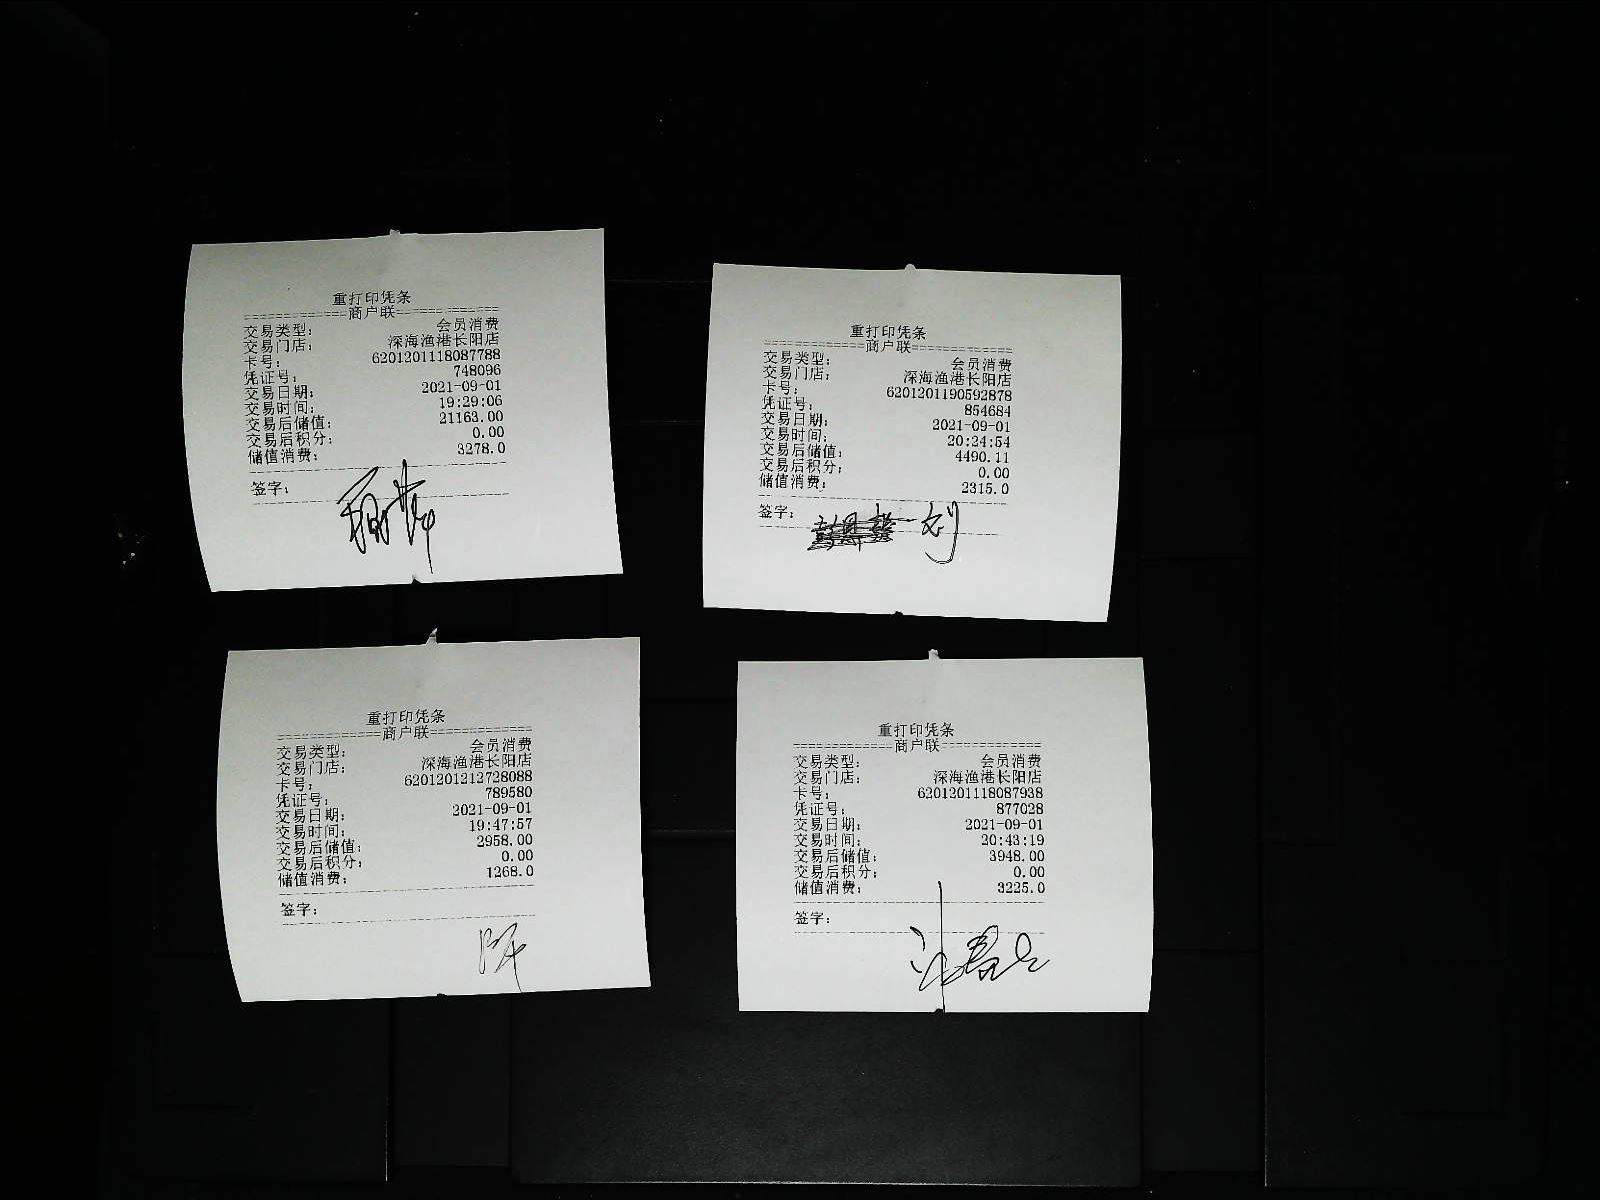 重打印凭条
=============商户联=============
交易类型： 会员消费
交易门店： 深海渔港长阳店
卡号： 6201201118087788
凭证号： 748096
交易日期： 2021-09-01
交易时间： 19:29:06
交易后储值： 21163.00
交易后积分： 0.00
储值消费： 3278.0
签字：
重打印凭条
=============商户联=============
交易类型： 会员消费
交易门店： 深海渔港长阳店
卡号： 6201201190592878
凭证号： 854684
交易日期： 2021-09-01
交易时间： 20:24:54
交易后储值： 4490.11
交易后积分： 0.00
储值消费： 2315.0
签字： 刘
重打印凭条
=============商户联=============
交易类型： 会员消费
交易门店： 深海渔港长阳店
卡号： 6201201212728088
凭证号： 789580
交易日期： 2021-09-01
交易时间： 19:47:57
交易后储值： 2958.00
交易后积分： 0.00
储值消费： 1268.0
签字：
重打印凭条
=============商户联=============
交易类型： 会员消费
交易门店： 深海渔港长阳店
卡号： 6201201118087938
凭证号： 877028
交易日期： 2021-09-01
交易时间： 20:43:19
交易后储值： 3948.00
交易后积分： 0.00
储值消费： 3225.0
签字：